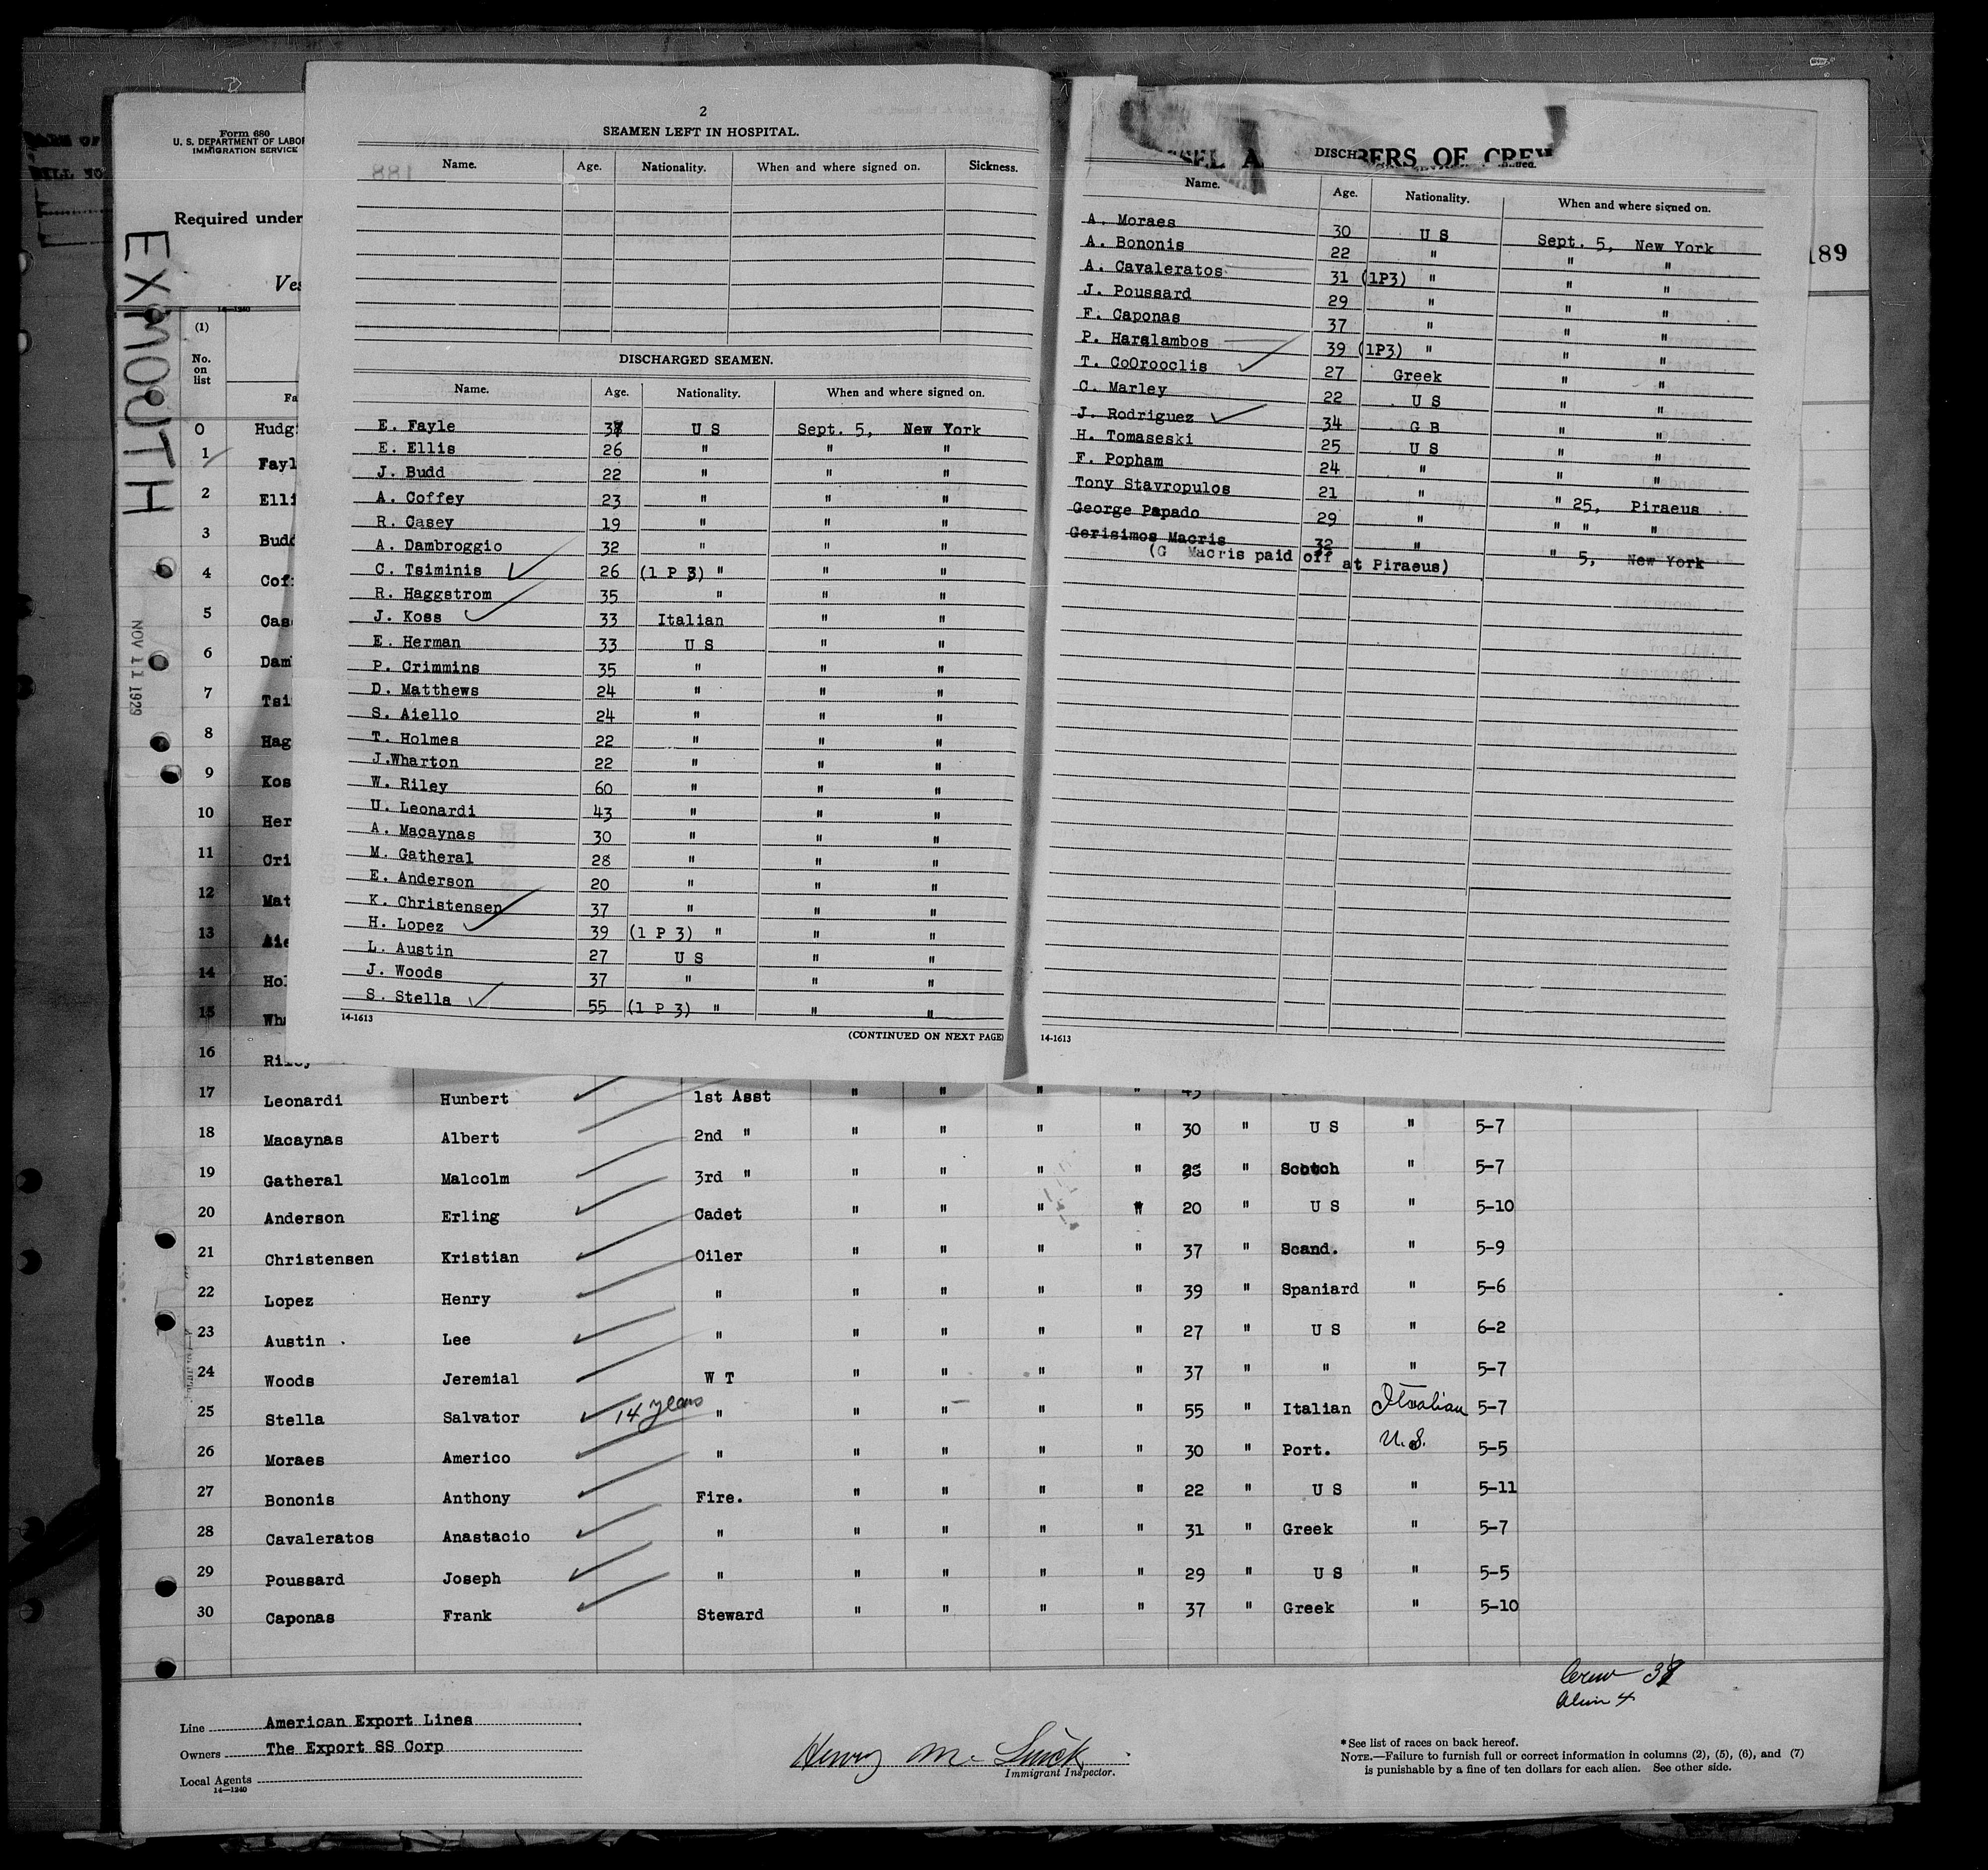 Form 680
U. S. DEPARTMENT OF LABOR
IMMIGRATION SERVICE
Required under
EXMOUTH
NOV 11 1929
14—1240
(1)
No. on list
0 Hudg
1 Fayl
2 Elli
3 Budd
4 Cof
5 Cas
6 Dam
7 Tsi
8 Hag
9 Kos
10 Her
11 Cri
12 Mat
13 Aie
14 Hol
15 Wha
16 Riley
2
SEAMEN LEFT IN HOSPITAL.
Name. Age. Nationality. When and where signed on. Sickness.
DISCHARGED SEAMEN.
Name. Age. Nationality. When and where signed on.
E. Fayle 37 U S Sept. 5, New York
E. Ellis 26 " " "
J. Budd 22 " " "
A. Coffey 23 " " "
R. Casey 19 " " "
A. Dambroggio 32 " " "
C. Tsiminis 26 (1 P 3) " " "
R. Haggstrom 35 " " "
J. Koss 33 Italian " "
E. Herman 33 U S " "
P. Crimmins 35 " " "
D. Matthews 24 " " "
S. Aiello 24 " " "
T. Holmes 22 " " "
J.Wharton 22 " " "
W. Riley 60 " " "
U. Leonardi 43 " " "
A. Macaynas 30 " " "
M. Gatheral 28 " " "
E. Anderson 20 " " "
K. Christensen 37 " " "
H. Lopez 39 (1 P 3) " " "
L. Austin 27 U S " "
J. Woods 37 " " "
S. Stella 55 (1 P 3) " " "
14-1613
(CONTINUED ON NEXT PAGE)
DISCH
BERS OF CREW
Name. Age. Nationality. When and where signed on.
A. Moraes 30 U S Sept. 5, New York
A. Bononis 22 " " "
A. Cavaleratos 31 (1P3) " " "
J. Poussard 29 " " "
F. Caponas 37 " " "
P. Haralambos 39 (1P3) " " "
T. CoOrooclis 27 Greek " "
C. Marley 22 U S " "
J. Rodriguez 34 G B " "
H. Tomaseski 25 U S " "
F. Popham 24 " " "
Tony Stavropulos 21 " " 25, Piraeus
George Papado 29 " " " "
Gerisimos Macris 32 " " 5, New York
(G Macris paid off at Piraeus)
14-1613
189
17 Leonardi Hunbert 1st Asst " " " " 43
18 Macaynas Albert 2nd " " " " " 30 " U S " 5-7
19 Gatheral Malcolm 3rd " " " " " 28 " Scotch " 5-7
20 Anderson Erling Cadet " " " " 20 " U S " 5-10
21 Christensen Kristian Oiler " " " " 37 " Scand. " 5-9
22 Lopez Henry " " " " " 39 " Spaniard " 5-6
23 Austin . Lee " " " " " 27 " U S " 6-2
24 Woods Jeremial W T " " " " 37 " " " 5-7
25 Stella Salvator 14 years " " " " " 55 " Italian Italian 5-7
26 Moraes Americo " " " " " 30 " Port. U.S. 5-5
27 Bononis Anthony Fire. " " " " 22 " U S " 5-11
28 Cavaleratos Anastacio " " " " " 31 " Greek " 5-7
29 Poussard Joseph " " " " " 29 " U S " 5-5
30 Caponas Frank Steward " " " " 37 " Greek " 5-10
Crew
Alien 4
Line American Export Lines
Owners The Export SS Corp
Local Agents
14—1240
Henry
Immigrant Inspector.
* See list of races on back hereof.
NOTE.—Failure to furnish full or correct information in columns (2), (5), (6), and (7)
is punishable by a fine of ten dollars for each alien. See other side.